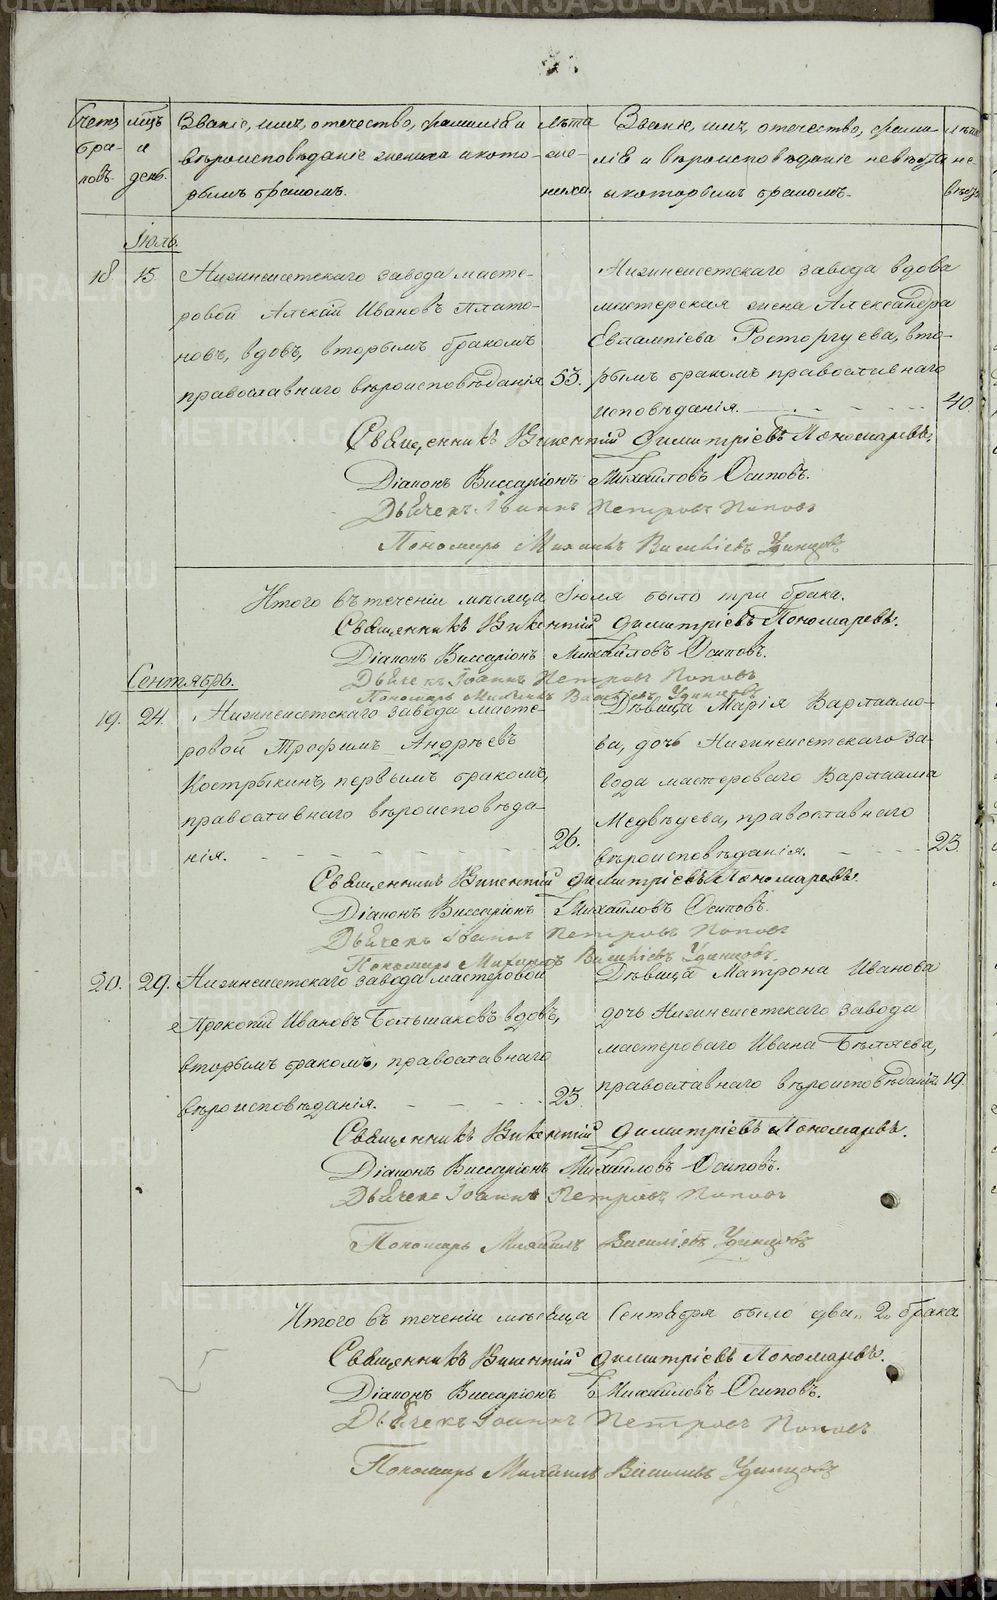 Счетъ браковъ.
мѣсцъ и день.
Званіе, имя, отечество, фамилія и
вѣроисповѣданіе жениха и кото-
рымъ бракомъ.
лѣта
же-
ниха.
Званіе, имя, отечество, фами-
лія и вѣроисповѣданіе невѣсты
и которымъ бракомъ.
лѣта не-
вѣсты
Іюль.
18 15. Нижнеисетскаго завода масте-
ровой Алексѣй Ивановъ Плато-
новъ, вдовъ, вторымъ бракомъ
православнаго вѣроисповѣданія 53.
Нижнеисетскаго завода вдова
мастерская жена Александра
Евлампіева Расторгуева, вто-
рымъ бракомъ православнаго
исповѣданія. 40
Священникъ Викентій Димитріевъ Пономаревъ.
Діаконъ Виссаріонъ Михайловъ Осиповъ.
Дьячекъ Іоаннъ Петровъ Поповъ
Пономарь Михаилъ Васильевъ Удинцовъ
Итого въ теченіи мѣсяца Іюля было три брака.
Священникъ Викентій Димитріевъ Пономаревъ.
Діаконъ Виссаріонъ Михайловъ Осиповъ.
Дьячекъ Іоаннъ Петровъ Поповъ
Пономарь Михаилъ Васильевъ Удинцовъ
Сентябрь.
19. 24. Нижнеисетскаго завода масте-
ровой Трофимъ Андреевъ
Кострыкинъ, первымъ бракомъ,
православнаго вѣроисповѣда-
нія. 26.
Дѣвица Марія Варлаамо-
ва, дочь Нижнеисетскаго за-
вода мастероваго Варлаама
Медвѣдева, православнаго
вѣроисповѣданія. 23
Священникъ Викентій Димитріевъ Пономаревъ.
Діаконъ Виссаріонъ Михайловъ Осиповъ.
Дьячекъ Іоаннъ Петровъ Поповъ
Пономарь Михаилъ Васильевъ Удинцовъ.
20. 29. Нижнеисетскаго завода мастеровой
Прокопій Ивановъ Большаковъ вдовъ,
вторымъ бракомъ, православнаго
вѣроисповѣданія. 23.
Дѣвица Матрона Иванова
дочь Нижнеисетскаго завода
мастероваго Ивана Бѣляева,
православнаго вѣроисповѣданія 19.
Священникъ Викентій Димитріевъ Пономаревъ.
Діаконъ Виссаріонъ Михайловъ Осиповъ.
Дьячекъ Іоаннъ Петровъ Поповъ
Пономарь Михаилъ Васильевъ Удинцовъ
Итого въ теченіи мѣсяца Сентября было два „2„ брака
Священникъ Викентій Димитріевъ Пономаревъ.
Діаконъ Виссаріонъ Михайловъ Осиповъ.
Дьячекъ Іоаннъ Петровъ Поповъ
Пономарь Михаилъ Васильевъ Удинцовъ
METRIKI.GASO-URAL.RU